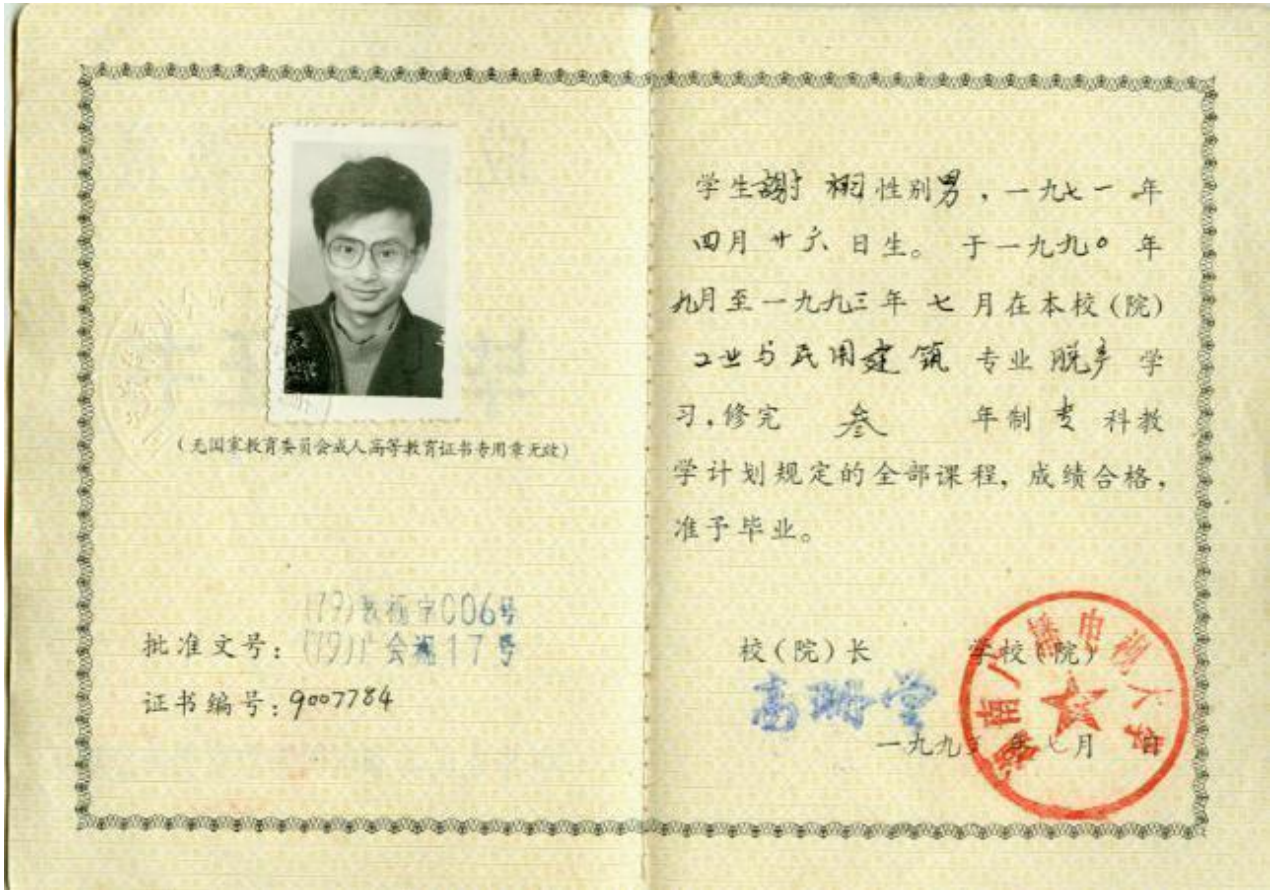 (无国家教育委员会成人高等教育证书专用章无效)
批准文号:
(79)教福字006号
(79)广会湘17号
证书编号:9007784
学生謝 栩性别男,一九七一年
四月廿六日生。于一九九〇年
九月至一九九三年七月在本校(院)
工业与民用建筑 专业 脱产 学
习,修完 叁 年制 专 科教
学计划规定的全部课程,成绩合格,
准予毕业。
校(院)长 学校(院)
高
一九九三年七月 日
湖南广播电视大学